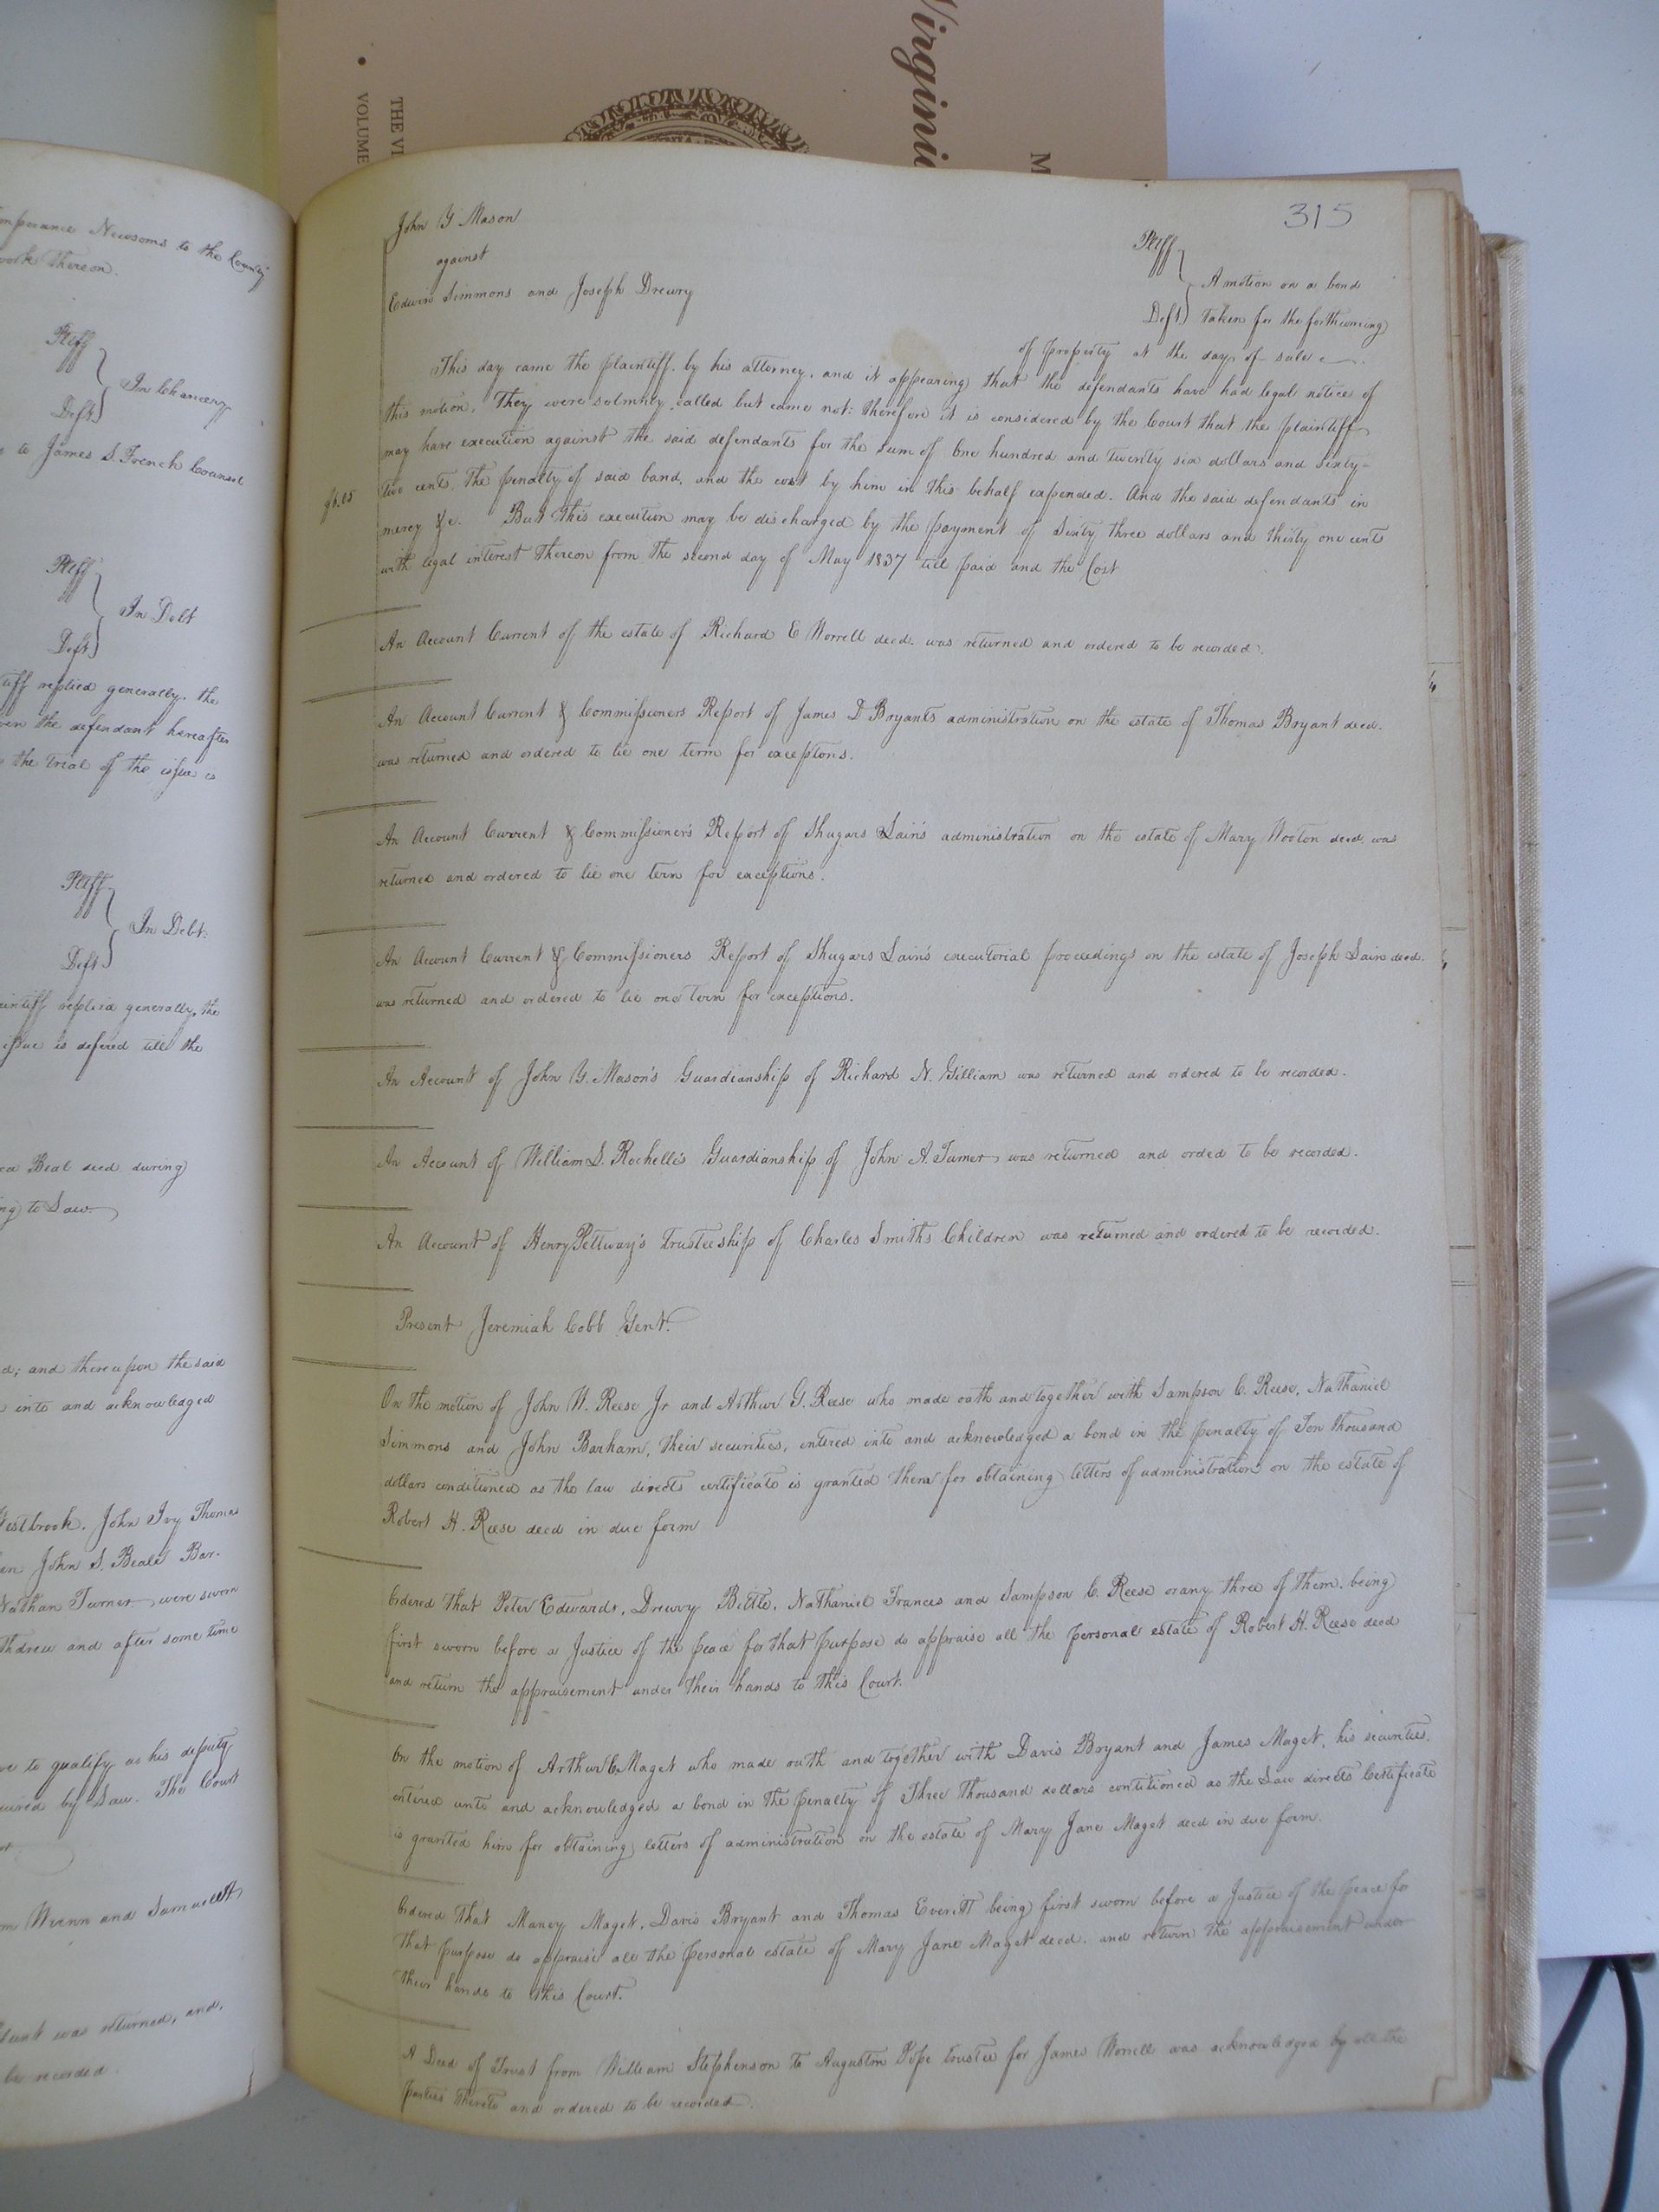 Virginia
M
THE VI
VOLUME
mperance Newsoms to the County
ook thereon.
Pltff
In Chancery
Deft
to James S. French Counsel
Pltff
In Debt
Deft
tiff replied generally. the
the defendant hereafter
the trial of the issue is
Pltff
In Debt.
Deft
aintiff replied generally, the
issue is defered till the
Beal decd during
ng to Law.
d; and thereupon the said
into and acknowledged
Westbrook. John Ivy Thomas
John S. Beale Bar.
Nathan Turner were sworn
thdrew and after some time
ve to qualify as his deputy
uired by Law. The Court
m Wrenn and Samuel A
was returned, and,
be recorded.
315
John Y Mason
Pltff
against
A motion on a bond
Edwin Simmons and Joseph Drewry
Deft taken for the forthcoming
of property at the day of sale
This day came the plaintiff by his attorney, and it appearing that the defendants have had legal notice of
this motion, They were solmnly called but came not: therefore it is considered by the Court that the plaintiff
may have execution against the said defendants for the sum of One hundred and twenty six dollars and sixty-
two cents, the penalty of said band, and the cost by him in this behalf expended. And the said defendants in
mercy &c. But this execution may be discharged by the payment of Sixty three dollars and thirty one cents
with legal interest thereon from the second day of May 1837 till paid and the Cost
An Account Current of the estate of Richard E Worrell decd. was returned and ordered to be recorded.
An Account Current & Commissioners Report of James D Bryants administration on the estate of Thomas Bryant decd.
was returned and ordered to lie one term for exceptons.
An Account Current & Commissioner's Report of Shugars Lain's administration on the estate of Mary Wooton decd. was
returned and ordered to lie one term for exceptions.
An Account Current & Commissioners Report of Shugars Lain's executorial proceedings on the estate of Joseph Lain decd.
was returned and ordered to lie one term for exceptions.
An Account of John Y. Mason's Guardianship of Richard N. Gilliam was returned and ordered to be recorded.
An Account of William S. Rochelle's Guardianship of John A. Turner was returned and orded to be recorded.
An Account of Henry Pettway's trusteeship of Charles Smith's Children was returned and ordered to be recorded.
Present Jeremiah Cobb Gent.
On the motion of John W. Reese Jr and Arthur G. Reese who made oath and together with Sampson C. Reese, Nathaniel
Simmons and John Barham, their securities, entered into and acknowledged a bond in the penalty of Ten thousand
dollars conditioned as the law directs certificate is granted them for obtaining letters of administration on the estate of
Robert H. Reese decd in due form
Ordered that Peter Edwards, Drewry Bittle, Nathaniel Frances and Sampson C. Reese or any three of them, being
first sworn before a Justice of the peace for that purpose do appraise all the personal estate of Robert H. Reese decd
and return the appraisement under their hands to this Court.
On the motion of Arthur C Maget who made oath and together with Davis Bryant and James Maget, his securities,
entered unto and acknowledged a bond in the penalty of Three thousand dollars contitioned as the Law directs Certificate
is granted him for obtaining letters of administration on the estate of Mary Jane Maget decd in due form.
Ordered that Maney Maget, Davis Bryant and Thomas Everitt being first sworn before a Justice of the peace for
that purpose do appraise all the personal estate of Mary Jane Maget decd. and return the appraisement under
their hands to this Court.
A Deed of Trust from William Stephenson to Augustin Pope trustee for James Worrell was acknowledged by all the
parties thereto and ordered to be recorded.